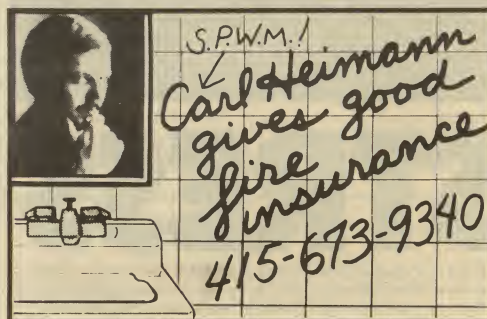 S.P.W.M.!
Carl Heimann
gives good
fire
insurance
415-673-9340